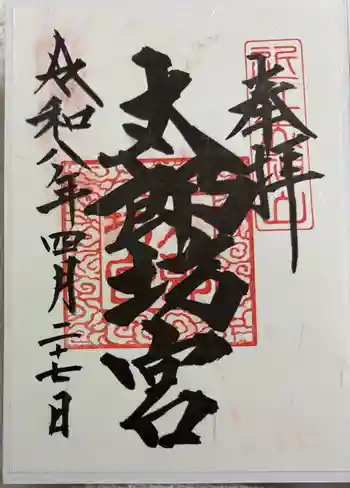 奉拝
太郎坊宮
令和八年四月二十七日